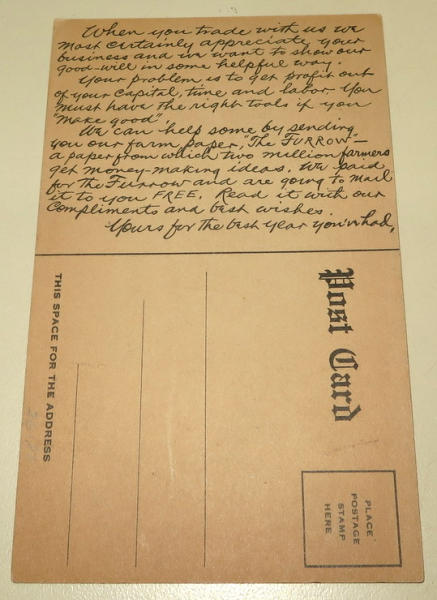 When you trade with us we
most certainly appreciate your
business and we want to show our
good-will in some helpful way.
Your problem is to get profit out
of your capital, time and labor. You
must have the right tools if you
"make good".
We can help some by sending
you our farm paper, "The FURROW" —
a paper from which two million farmers
get money-making ideas. We paid
for the Furrow and are going to mail
it to you FREE. Read it with our
compliments and best wishes.
Yours for the best year you've had,
Post Card
THIS SPACE FOR THE ADDRESS
PLACE
POSTAGE
STAMP
HERE